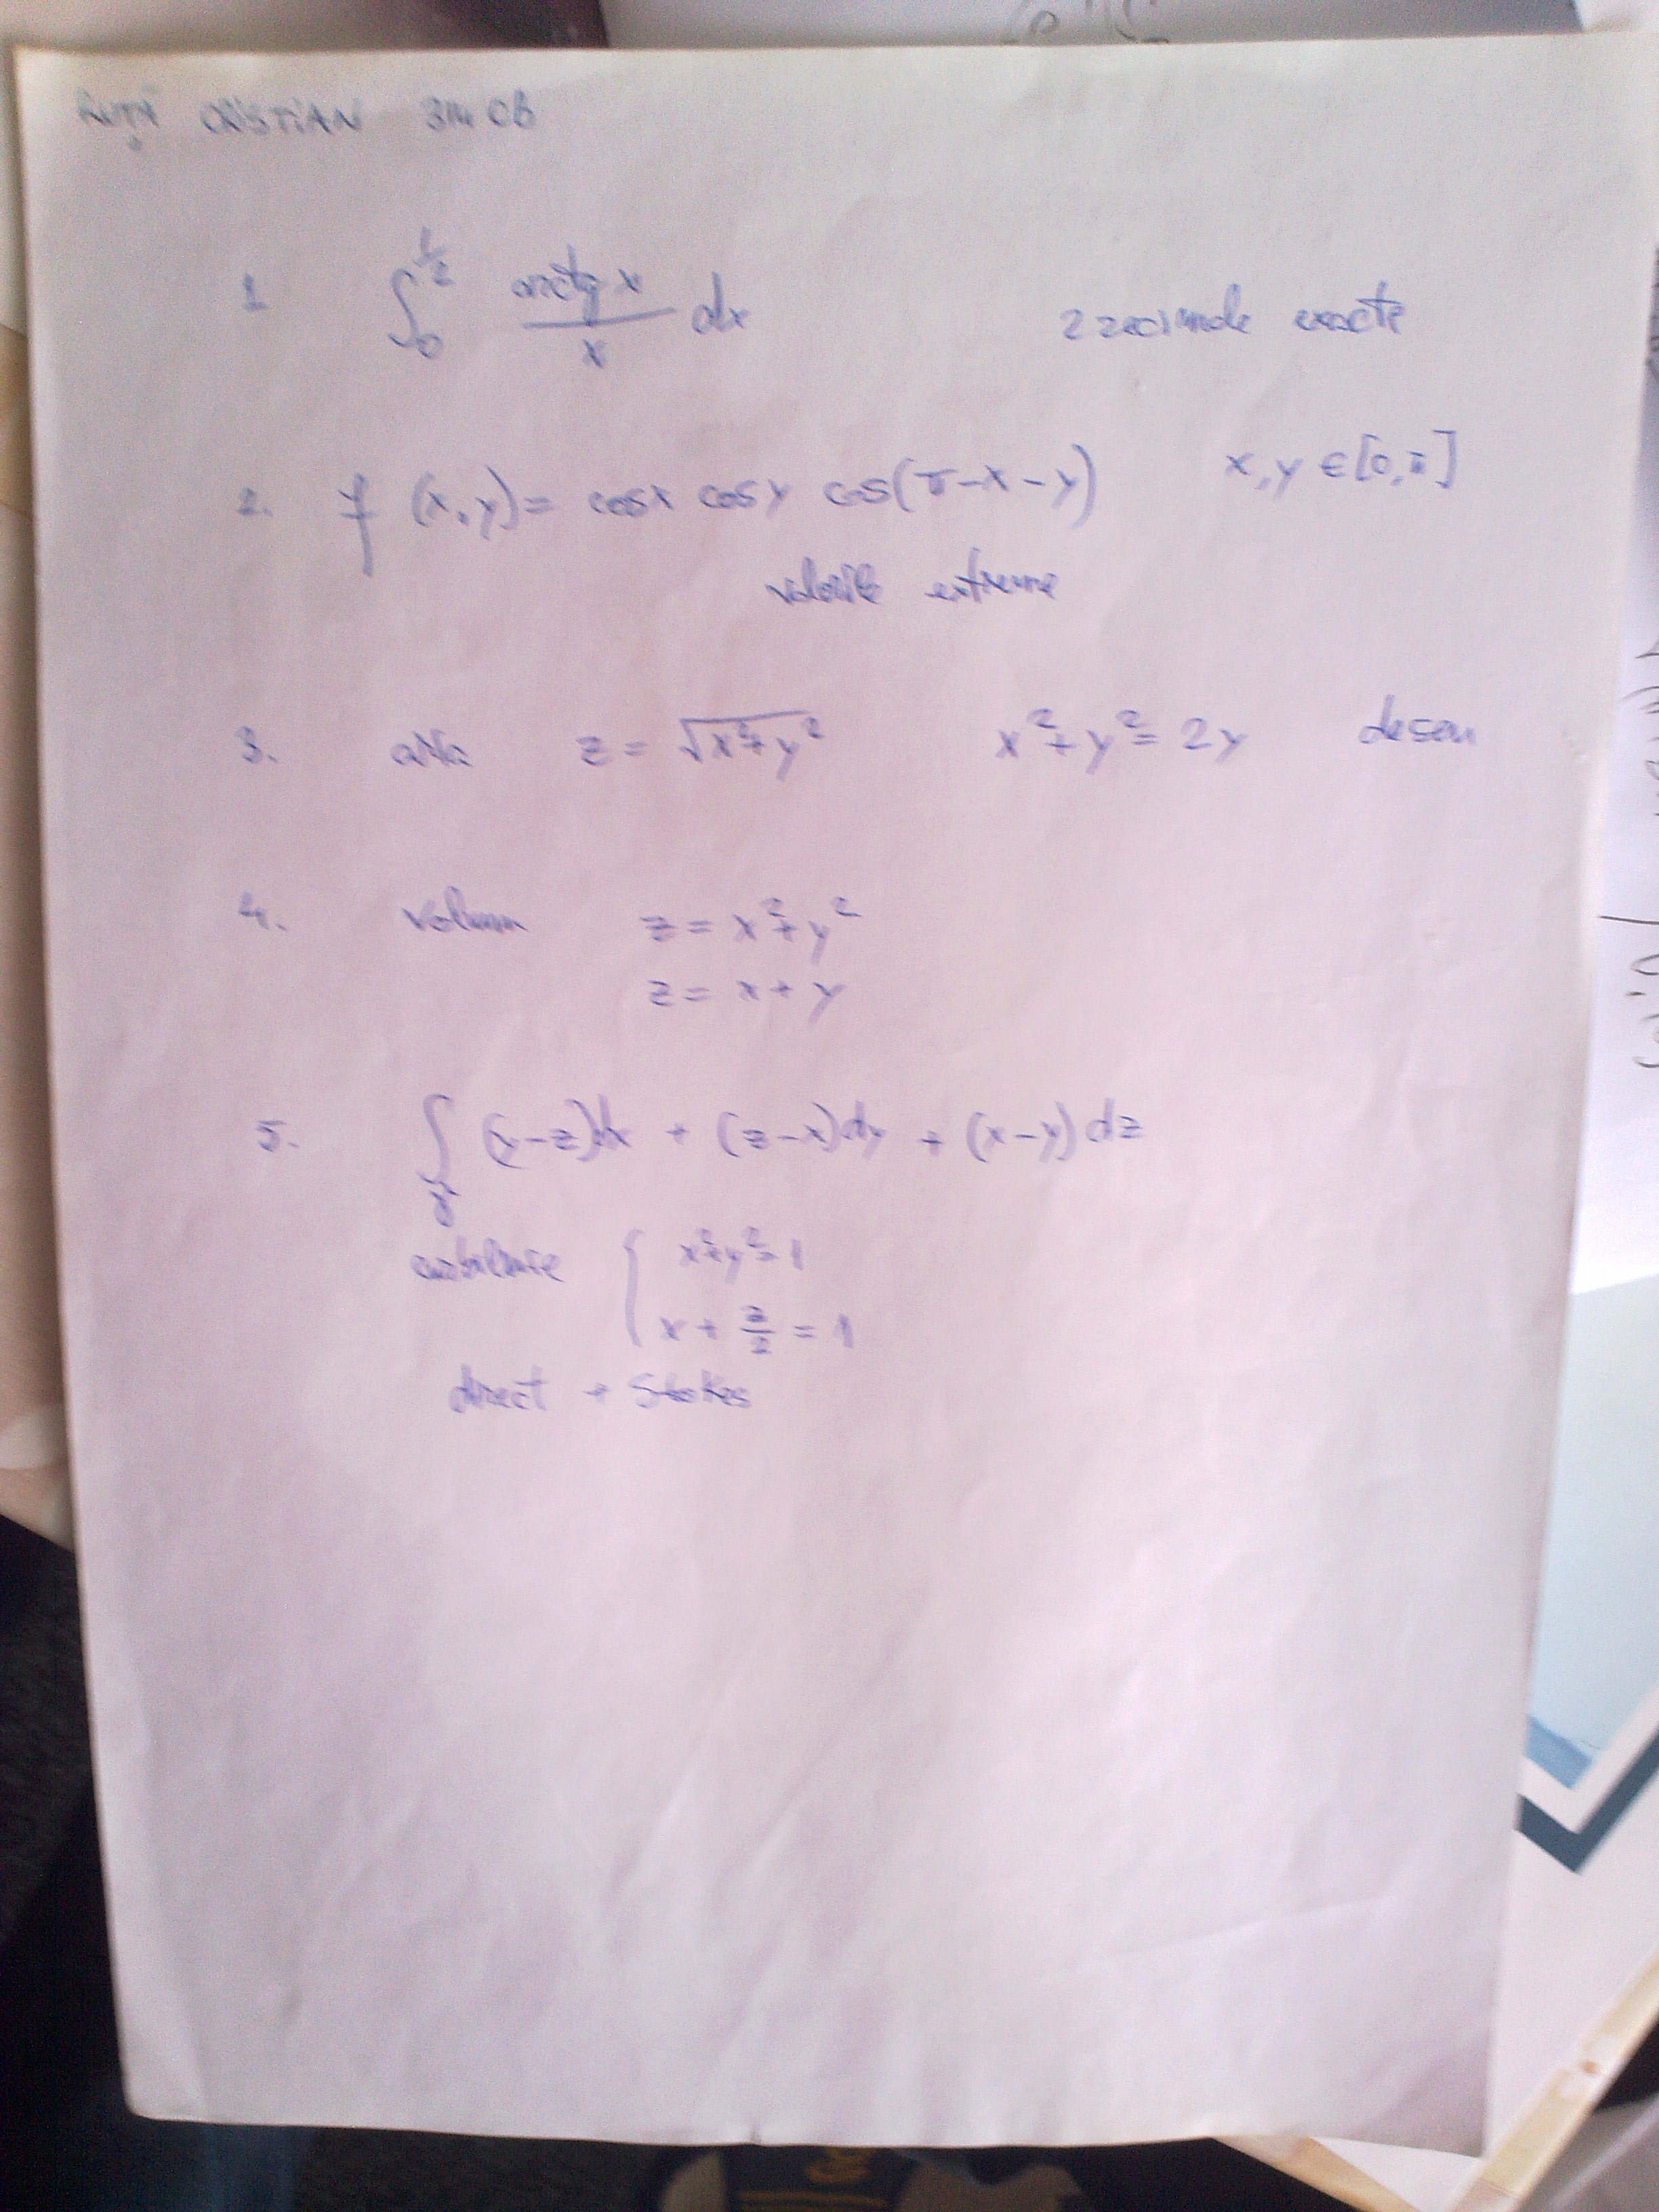 CRISTIAN 314 CB
1 ∫₀^{1/2} arctg x / x dx 2 zecimale exacte
2. f (x,y) = cosx cosy cos(π-x-y) x,y ∈ [0,π]
valorile extreme
3. aria z = √(x²+y²) x²+y² = 2y desen
4. volum z = x²+y²
z = x+y
5. ∫_γ (y-z)dx + (z-x)dy + (x-y)dz
{ x²+y²=1
x + z/2 = 1
direct + Stokes